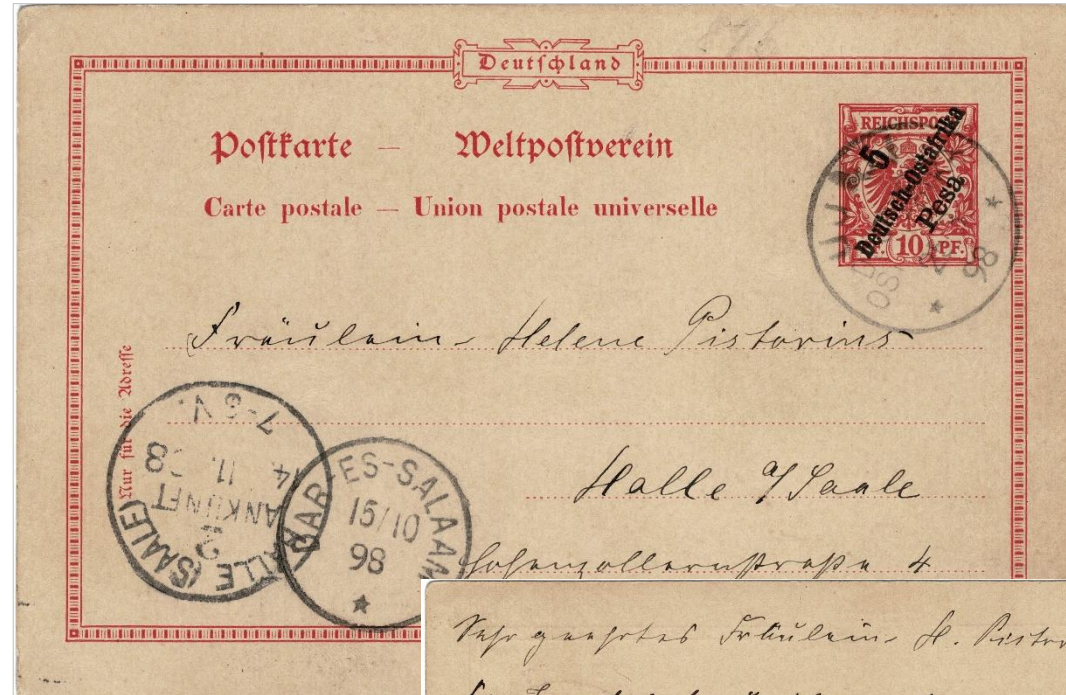 Deutschland
Postkarte — Weltpostverein
Carte postale — Union postale universelle
REICHSPOST
5
Deutsch-Ostafrika
Pesa
10 PF.
98
Fräulein Helene Pistorius
Halle a/Saale
Hohenzollernstraße 4
Nur für die Adresse
HALLE (SAALE)
2
ANKUNFT
14. 11. 98
7-8 V.
DAR-ES-SALAAM
15/10
98
Sehr geehrtes Fräulein H.